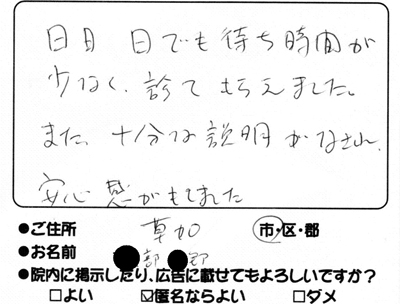 日月 日でも待ち時間が
少なく、診てもらえました。
また、十分な説明がなされ、
安心感がもてました
●ご住所 草加 市・区・郡
●お名前 部 野
●院内に掲示したり、広告に載せてもよろしいですか?
□よい ☑匿名ならよい □ダメ